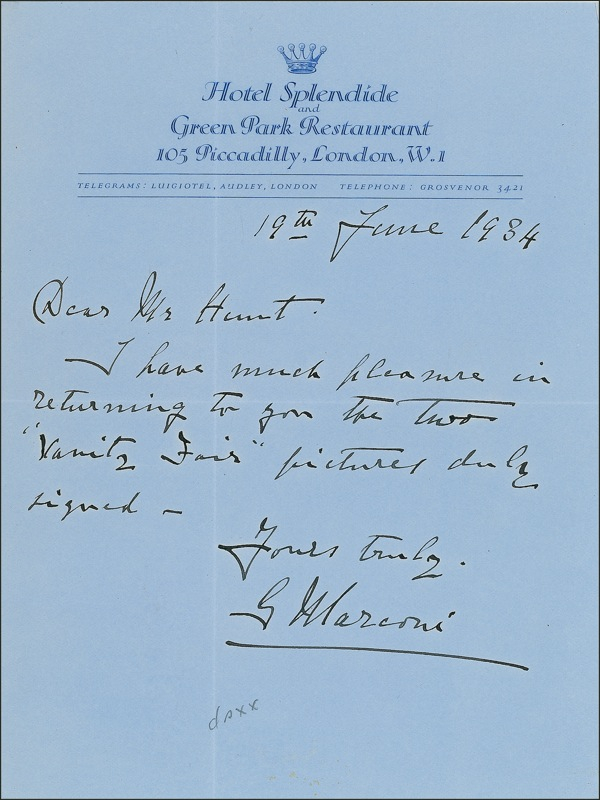 Hotel Splendide
and
Green Park Restaurant
105 Piccadilly, London, W.1
TELEGRAMS: LUIGIOTEL, AUDLEY, LONDON TELEPHONE: GROSVENOR 3421
19th June 1934
Dear Mr Hunt.
I have much pleasure in
returning to you the two
"Vanity Fair" pictures duly
signed –
Yours truly.
G Marconi